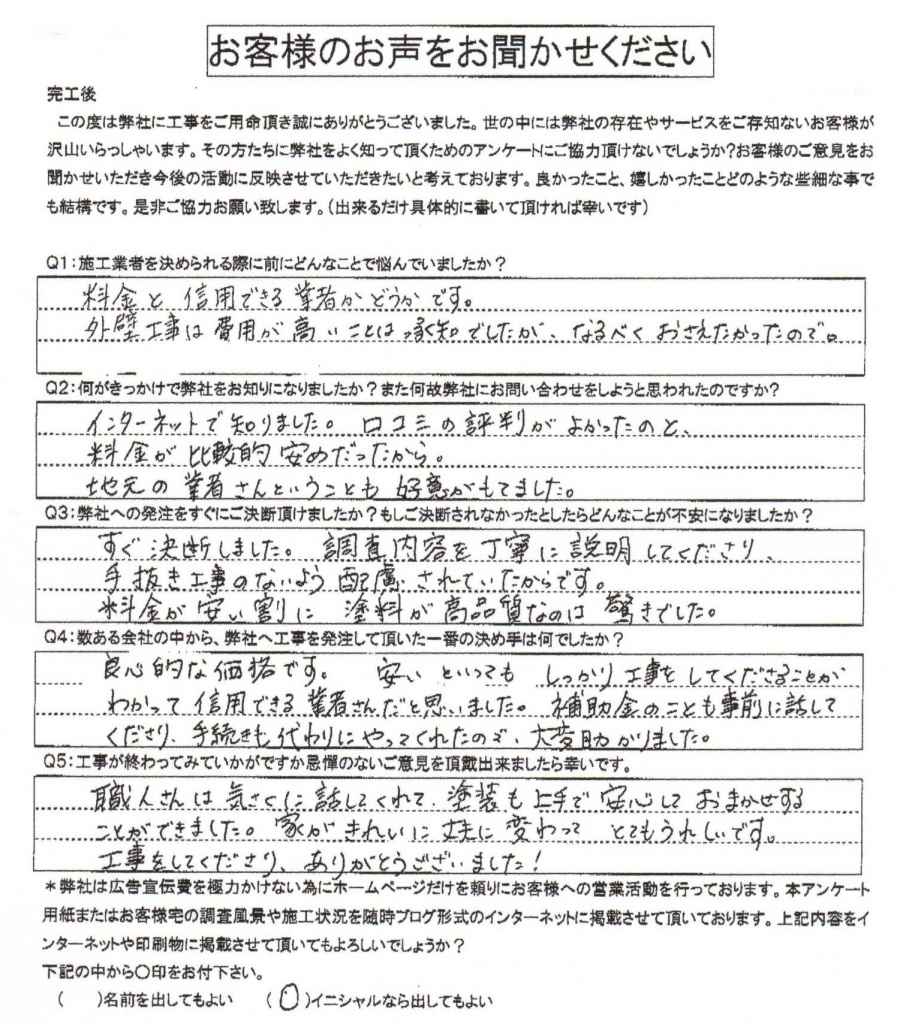 お客様のお声をお聞かせください
完工後
この度は弊社に工事をご用命頂き誠にありがとうございました。世の中には弊社の存在やサービスをご存知ないお客様が
沢山いらっしゃいます。その方たちに弊社をよく知って頂くためのアンケートにご協力頂けないでしょうか?お客様のご意見をお
聞かせいただき今後の活動に反映させていただきたいと考えております。良かったこと、嬉しかったことどのような些細な事で
も結構です。是非ご協力お願い致します。(出来るだけ具体的に書いて頂ければ幸いです)
Q1:施工業者を決められる際に前にどんなことで悩んでいましたか?
料金と信用できる業者かどうかです。
外壁工事は費用が高いことは承知でしたが、なるべくおさえたかったので。
Q2:何がきっかけで弊社をお知りになりましたか?また何故弊社にお問い合わせをしようと思われたのですか?
インターネットで知りました。口コミの評判がよかったのと、
料金が比較的安めだったから。
地元の業者さんということも好意がもてました。
Q3:弊社への発注をすぐにご決断頂けましたか?もしご決断されなかったとしたらどんなことが不安になりましたか?
すぐ決断しました。調査内容を丁寧に説明してくださり、
手抜き工事のないよう配慮されていたからです。
料金が安い割に塗料が高品質なのは驚きでした。
Q4:数ある会社の中から、弊社へ工事を発注して頂いた一番の決め手は何でしたか?
良心的な価格です。安いといってもしっかり工事をしてくださることが
わかって信用できる業者さんだと思いました。補助金のことも事前に話して
くださり、手続きも代わりにやってくれたので、大変助かりました。
Q5:工事が終わってみていかがですか忌憚のないご意見を頂戴出来ましたら幸いです。
職人さんは気さくに話してくれて、塗装も上手で安心しておまかせする
ことができました。家がきれいに丈夫に変わってとてもうれしいです。
工事をしてくださり、ありがとうございました!
*弊社は広告宣伝費を極力かけない為にホームページだけを頼りにお客様への営業活動を行っております。本アンケート
用紙またはお客様宅の調査風景や施工状況を随時ブログ形式のインターネットに掲載させて頂いております。上記内容をイ
ンターネットや印刷物に掲載させて頂いてもよろしいでしょうか?
下記の中から〇印をお付下さい。
( )名前を出してもよい (〇)イニシャルなら出してもよい